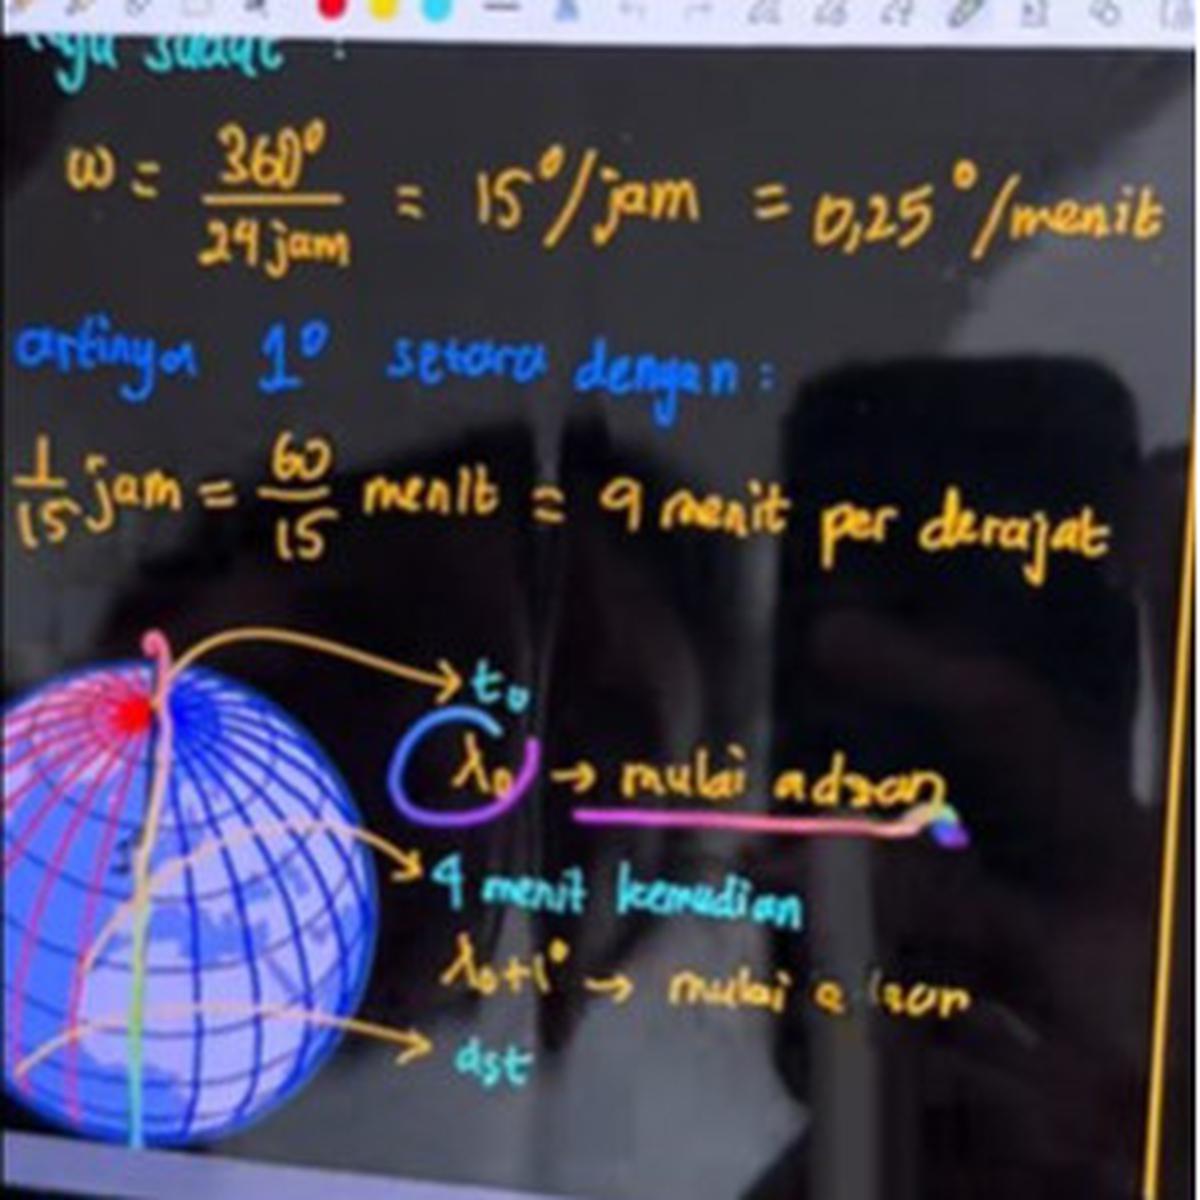 sudut :
ω = 360°/24 jam = 15°/jam = 0,25°/menit
artinya 1° setara dengan :
1/15 jam = 60/15 menit = 4 menit per derajat
t₀
λ₀ → mulai adzan
4 menit kemudian
λ₀+1° → mulai
dst